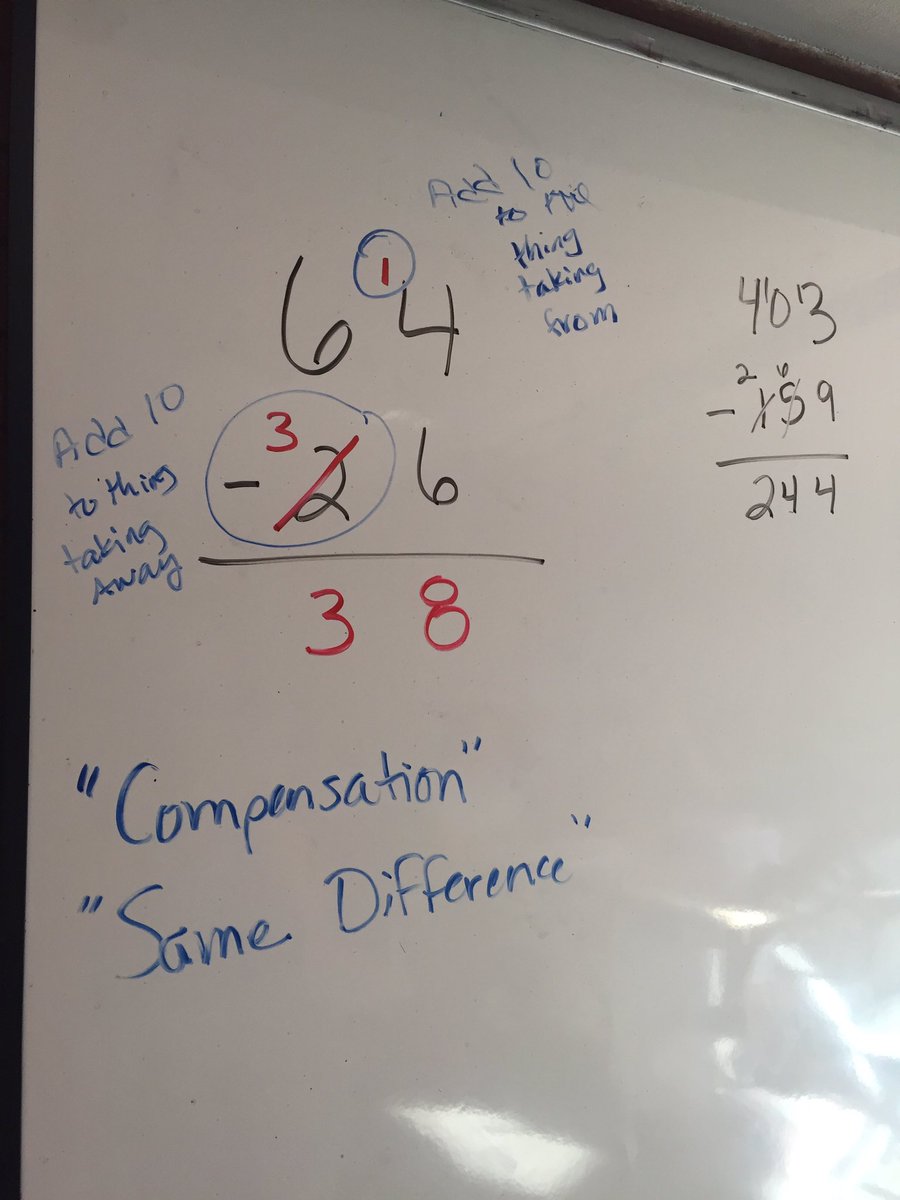 Add 10
to the
thing
taking
from
6 ¹4
Add 10
to thing
taking
Away
- ³2 6
3 8
4 ¹0 ¹3
- ²1 ⁶5 9
244
"Compensation"
"Same Difference"